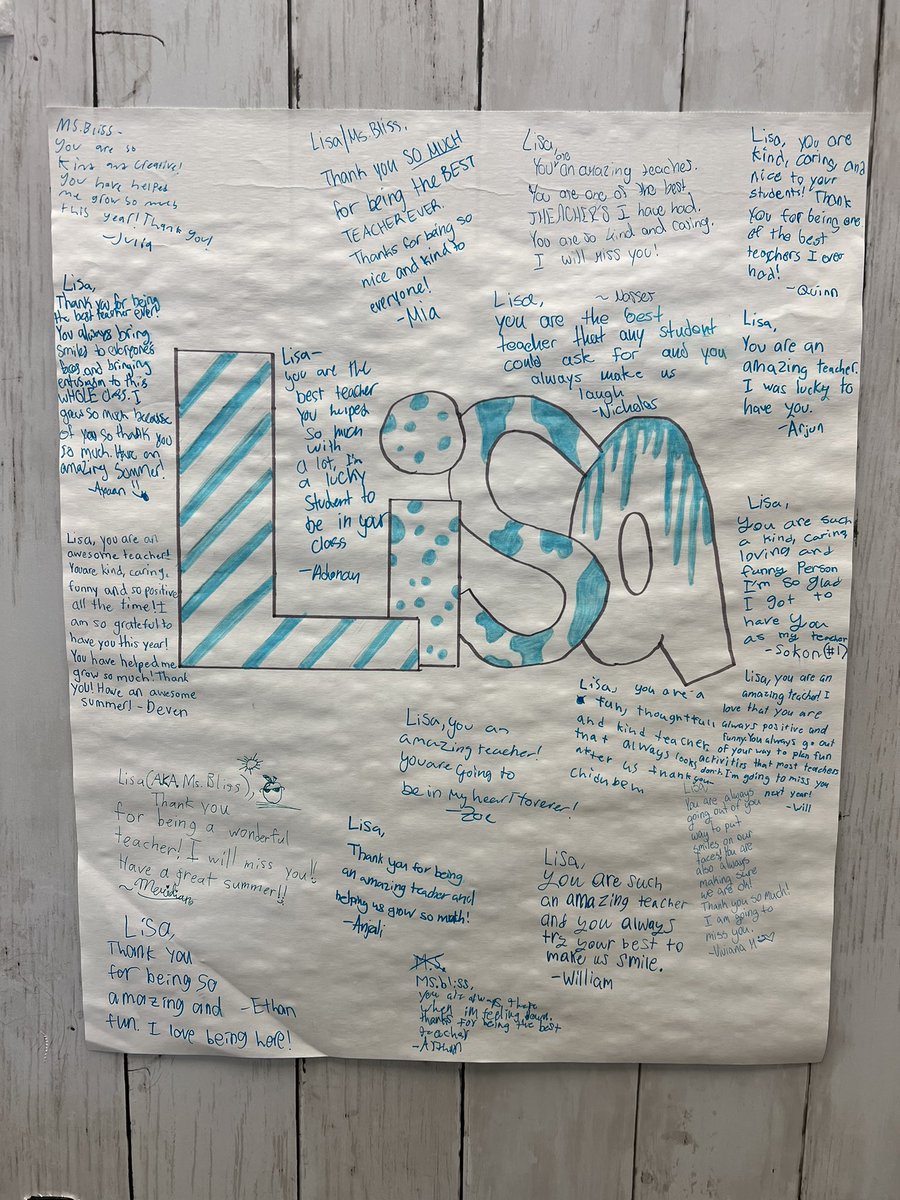 Ms.Bliss-
You are so
Kind and creative!
You have helped
me grow so much
this year! Thank you!
-Julia
Lisa/Ms.Bliss,
Thank you SO MUCH
for being the BEST
TEACHER EVER.
Thanks for being so
nice and kind to
everyone!
-Mia
Lisa,
You are an amazing teacher.
You are one of the best
TEACHERS I have had.
You are so kind and caring.
I will miss you!
~ Nasser
Lisa, you are
kind, caring, and
nice to your
students! Thank
you for being one
of the best
teachers I ever
had!
-Quinn
Lisa,
Thank you for being
the best teacher ever!
You always bring
smiles to everyones
faces and bringing
entusiasm to this
WHOLE CLASS. I
grew so much because
of you so thank you
so much. Have an
amazing summer!
-Ayaan
Lisa-
you are the
best teacher
you helped
so much
with
a lot, I'm
a lucky
student to
be in your
class
-Adonay
Lisa,
you are the best
teacher that any student
could ask for and you
always make us
laugh
-Nicholas
Lisa,
You are an
amazing teacher.
I was lucky to
have you.
-Arjun
LiSa
Lisa, you are an
awesome teacher!
You are kind, caring,
funny and so positive
all the time! I
am so grateful to
have you this year!
You have helped me
grow so much! Thank
you! Have an awesome
summer! -Deven
Lisa,
You are such
a kind, caring,
loving and
funny Person
I'm so glad
I got to
have you
as my teacher
-Sokon(#1)
Lisa, you are a
fun, thoughtfull
and kind teacher
that always looks
after us thank you
Chidubem
Lisa, you are an
amazing teacher! I
love that you are
always positive and
funny. You always go out
of your way to plan fun
activities that most teachers
don't. I'm going to miss you
next year!
-Will
Lisa(AKA Ms.Bliss),
Thank you
for being a wonderful
teacher! I will miss you!!
Have a great summer!!
~Meridian
Lisa, you an
amazing teacher!
you are going to
be in my heart forever!
-Zoe
Lisa,
Thank you for being
an amazing teacher and
helping us grow so much!
-Anjali
Lisa,
You are such
an amazing teacher
and you always
try your best to
make us smile.
-William
Lisa
You are always
going out of you
way to put
smiles on our
faces! You are
also always
making sure
we are oh!
Thank you so much!
I am going to
miss you.
-Viviana M
LiSa,
Thank you
for being so
amazing and
fun. I love being here!
-Ethan
M.S.
Ms.bliss,
you are always there
when im feeling down.
thanks for being the best
teacher